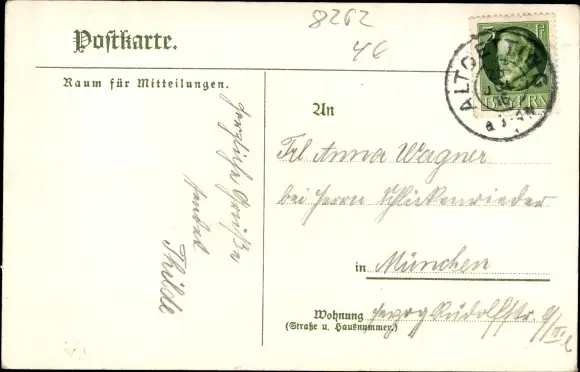 8262
46
Postkarte.
Raum für Mitteilungen.
Herzliche Grüße
sendet
Thilde
5 Pf
BAYERN
ALTOETTING
An
Frl Anna Wagner
bei Herrn Schlickenrieder
in München
Wohnung Herzog Rudolfstr.
(Straße u. Hausnummer.)